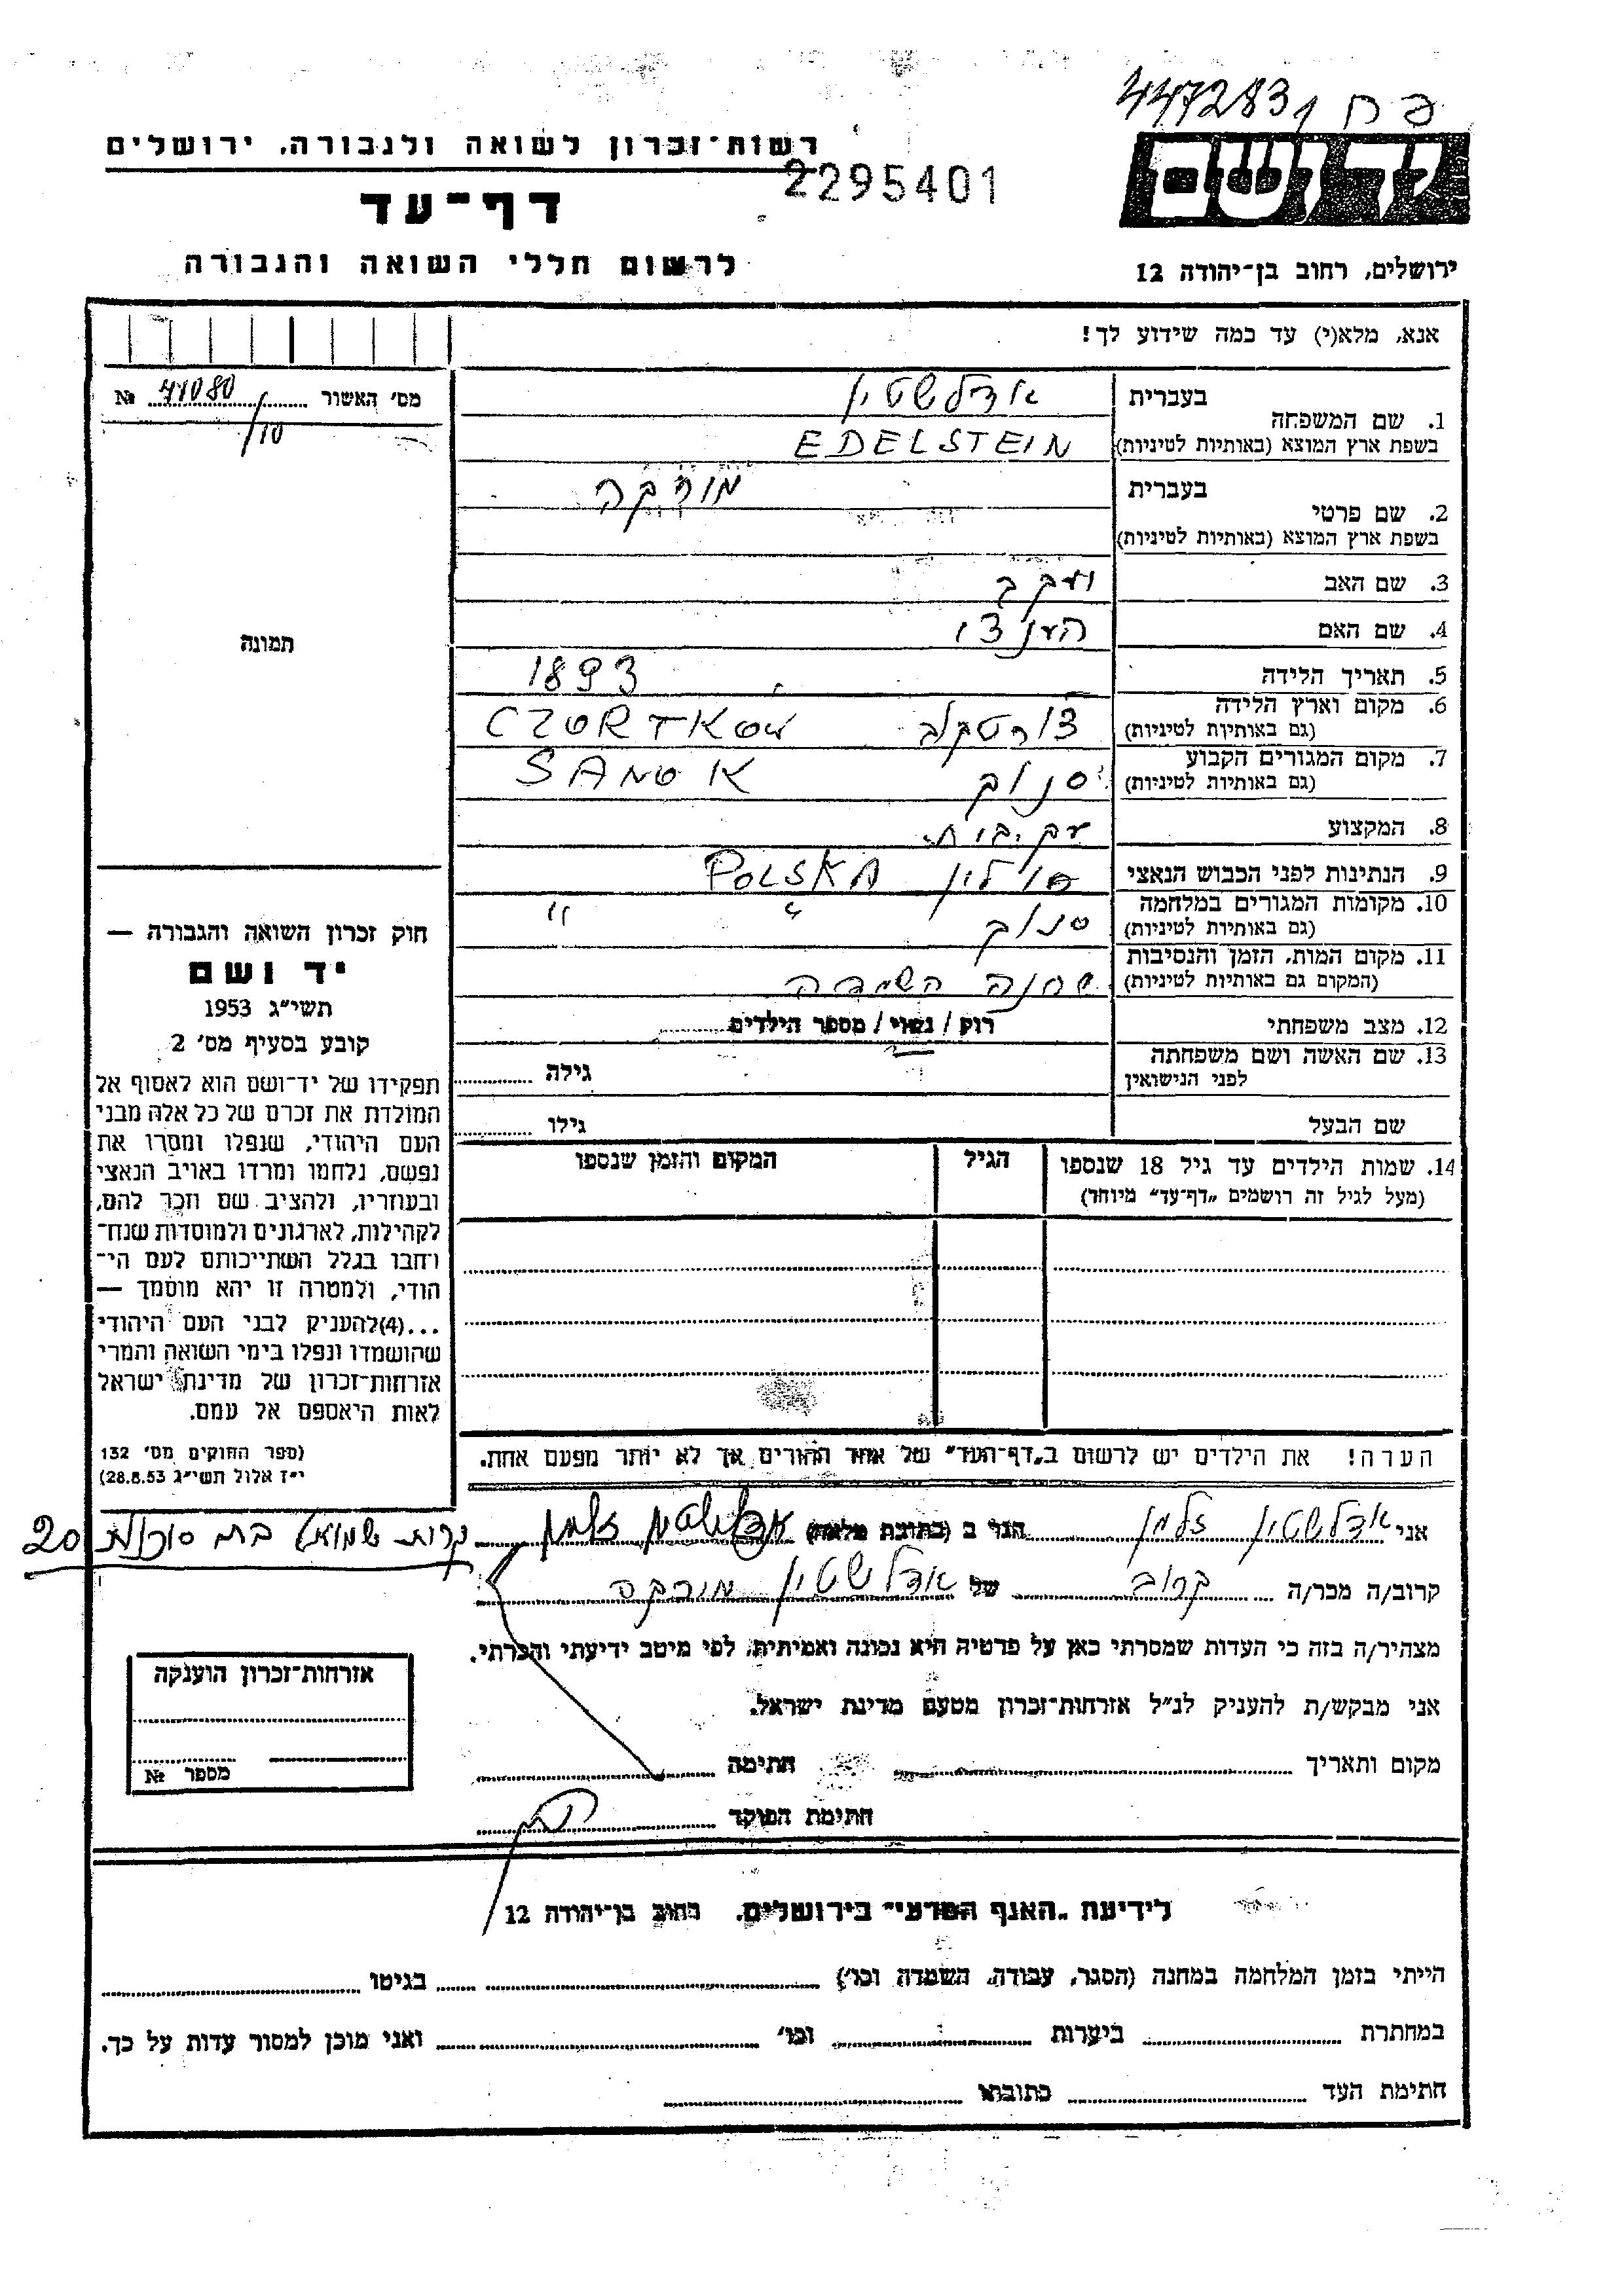 447283 פ ח
רשות־זכרון לשואה ולגבורה, ירושלים
2295401
יד ושם
דף־עד
לרשום חללי השואה והגבורה
ירושלים, רחוב בן־יהודה 12
אנא, מלא(י) עד כמה שידוע לך!
מס׳ האשור 41080 №
/10
תמונה
בעברית אדלשטין
1. שם המשפחה
בשפת ארץ המוצא (באותיות לטיניות) EDELSTEIN
בעברית
2. שם פרטי
בשפת ארץ המוצא (באותיות לטיניות)
3. שם האב יעקב
4. שם האם
5. תאריך הלידה 1893
6. מקום וארץ הלידה
(גם באותיות לטיניות) צורטקוב CZORTKOW
7. מקום המגורים הקבוע
(גם באותיות לטיניות) סנוק SANOK
8. המקצוע עק. בית
9. הנתינות לפני הכבוש הנאצי פולין POLSKA
10. מקומות המגורים במלחמה
(גם באותיות לטיניות) סנוק " "
11. מקום המות, הזמן והנסיבות
(המקום גם באותיות לטיניות) מחנה השמדה
12. מצב משפחתי רוק / נשוי / מספר הילדים
13. שם האשה ושם משפחתה
לפני הנישואין גילה
שם הבעל גילו
14. שמות הילדים עד גיל 18 שנספו הגיל המקום והזמן שנספו
(מעל לגיל זה רושמים „דף־עד״ מיוחד)
חוק זכרון השואה והגבורה —
יד ושם
תשי״ג 1953
קובע בסעיף מס׳ 2
תפקידו של יד־ושם הוא לאסוף אל
המולדת את זכרם של כל אלה מבני
העם היהודי, שנפלו ומסרו את
נפשם, נלחמו ומרדו באויב הנאצי
ובעוזריו, ולהציב שם וזכר להם,
לקהילות, לארגונים ולמוסדות שנח־
רחבו בגלל השתייכותם לעם הי־
הודי, ולמטרה זו יהא מוסמך —
...(4)להעניק לבני העם היהודי
שהושמדו ונפלו בימי השואה והמרי
אזרחות־זכרון של מדינת ישראל
לאות היאספם אל עמם.
(ספר החוקים מס׳ 132
י״ז אלול תשי״ג 28.8.53)
הערה! את הילדים יש לרשום ב„דף־העד״ של אחד ההורים אך לא יותר מפעם אחת.
אני אדלשטין זלמן הגר ב (כתובת מלאה) אדלשטין זלמן קרית שמואל 20
קרוב/ה מכר/ה קרוב של אדלשטין
מצהיר/ה בזה כי העדות שמסרתי כאן על פרטיה היא נכונה ואמיתית, לפי מיטב ידיעתי והכרתי.
אני מבקש/ת להעניק לנ״ל אזרחות־זכרון מטעם מדינת ישראל.
מקום ותאריך חתימה
חתימת הפוקד
אזרחות־זכרון הוענקה
מספר №
לידיעת „האגף המדעי״ בירושלים, רחוב בן־יהודה 12
הייתי בזמן המלחמה במחנה (הסגר, עבודה, השמדה וכו׳) בגיטו
במחתרת ביערות וכו׳ ואני מוכן למסור עדות על כך.
חתימת העד כתובתו